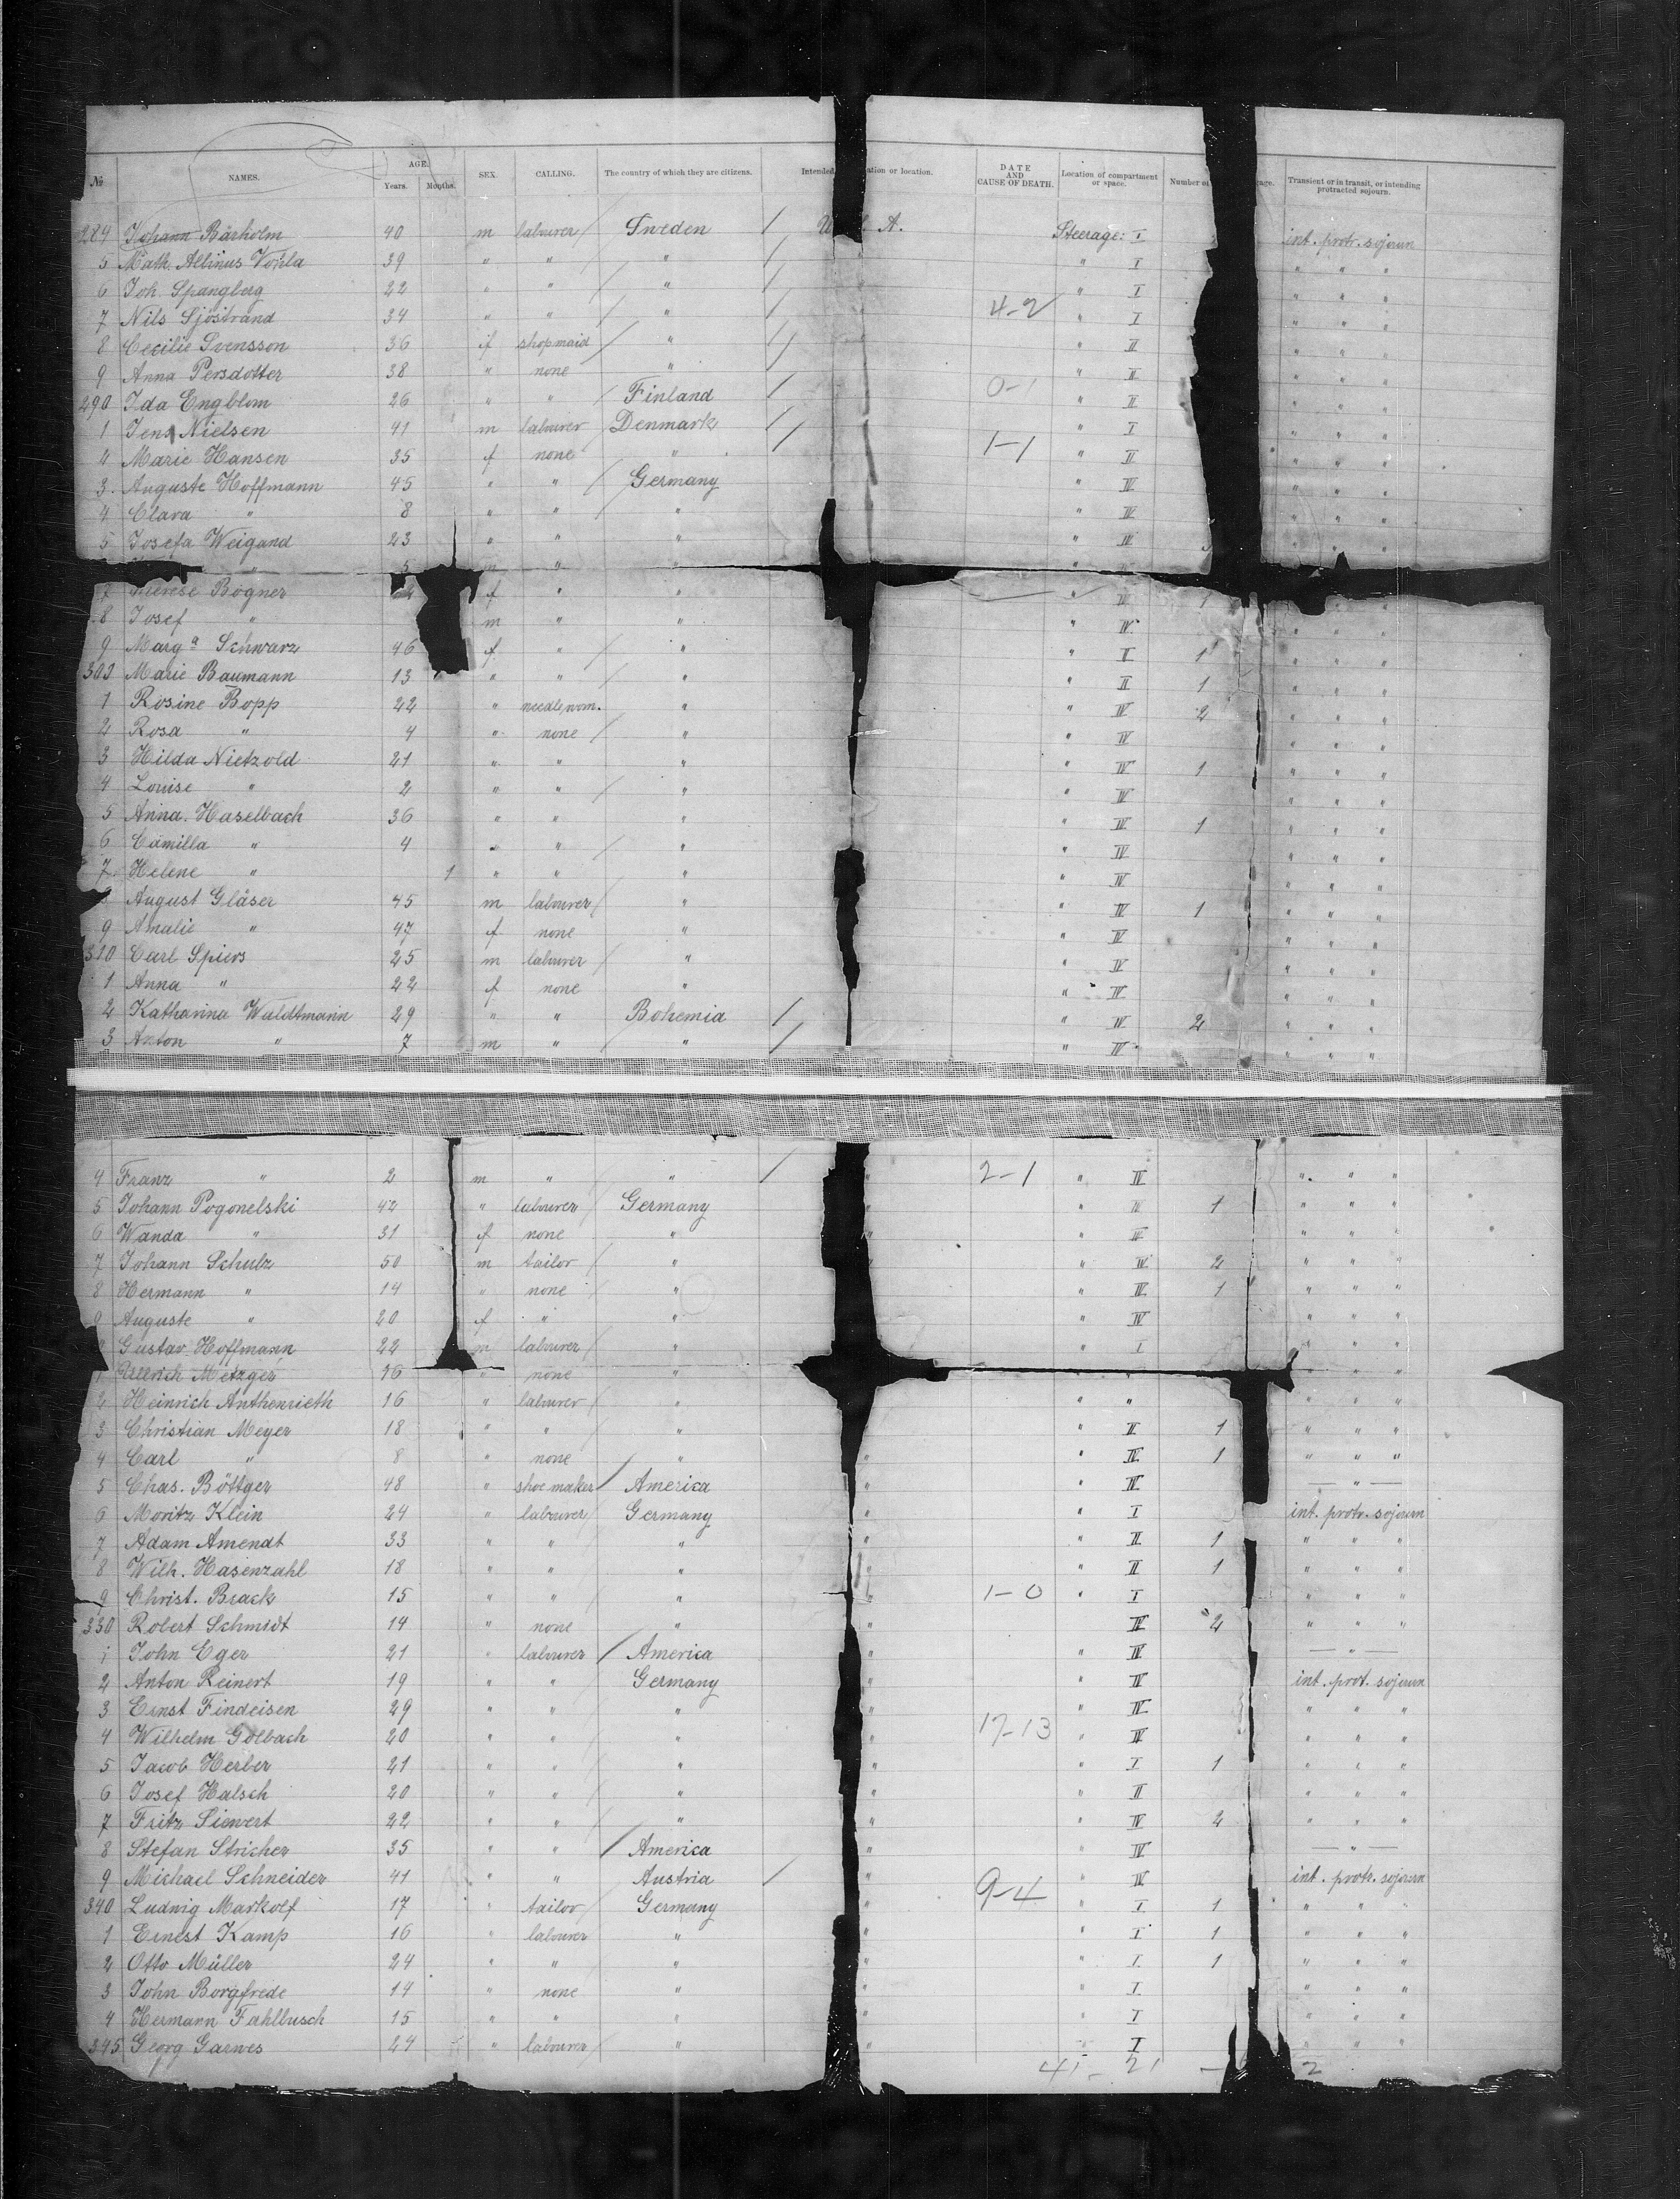 № NAMES. AGE. Years. Months. SEX. CALLING. The country of which they are citizens. Intended ation or location. DATE AND CAUSE OF DEATH. Location of compartment or space. Number of age. Transient or in transit, or intending protracted sojourn.
284 Johann Bärholm 40 m labourer Sweden / U. A. Steerage: I int. protr. sojourn
5 Math. Albinus Vohla 39 " " " / " I " " "
6 Joh. Spangberg 22 " " " / " I " " "
7 Nils Sjöstrand 34 " " " / 4-2 " I " " "
8 Cecilie Svensson 36 f shopmaid " / " II " " "
9 Anna Persdotter 38 " none " / " II " " "
290 Ida Engblom 26 " " Finland / 0-1 " II " " "
1 Jens Nielsen 41 m labourer Denmark / " I " " "
2 Marie Hansen 35 f none " / 1-1 " II " " "
3 Auguste Hoffmann 45 " " Germany " IV " " "
4 Clara " 8 " " " " IV " " "
5 Josefa Weigand 23 " " " " IV " " "
" 5 m " "
7 Therese Bogner f " " " IV 1
8 Josef " m " " " IV " " "
9 Marg.a Schwarz 46 f " " " II 1 " " "
300 Marie Baumann 13 " " " " II 1 " " "
1 Rosine Bopp 22 " needlewom. " " IV 2 " " "
2 Rosa " 4 " none " " IV " " "
3 Hilda Nietzold 21 " " " " IV 1 " " "
4 Louise " 2 " " " " IV " " "
5 Anna Haselbach 36 " " " " IV 1 " " "
6 Camilla " 4 " " " " IV " " "
7 Helene " 1 " " " " IV " " "
August Gläser 45 m labourer " " IV 1 " " "
9 Amalie " 47 f none " " IV " " "
310 Carl Spiers 25 m labourer " " IV " " "
1 Anna " 22 f none " " IV " " "
2 Katharina Waldtmann 29 " " Bohemia / " IV 2 " " "
3 Anton " 7 m " " / " IV " " "
4 Franz " 2 m " " / " 2-1 " IV " " "
5 Johann Pogonelski 42 " labourer Germany " " IV 1 " " "
6 Wanda " 31 f none " " " IV " " "
7 Johann Schulz 50 m tailor " " " IV 2 " " "
8 Hermann " 14 " none " " IV 1 " " "
9 Auguste " 20 f " " " IV " " "
Gustav Hoffmann 22 m labourer " " I " " "
1 Ullrich Metzger 16 " none " " " "
2 Heinrich Anthenrieth 16 " labourer " " " " " "
3 Christian Meyer 18 " " " " II 1 " " "
4 Carl " 8 " none " " " IV 1 " " "
5 Chas. Böttger 48 " shoemaker America " " IV — " —
6 Moritz Klein 24 " labourer Germany " " I int. protr. sojourn
7 Adam Amendt 33 " " " " " II 1 " " "
8 Wilh. Hasenzahl 18 " " " " " II 1 " " "
9 Christ. Brack 15 " " " " 1-0 " I " " "
330 Robert Schmidt 14 " none " " IV 2 " " "
1 John Eger 21 " labourer America " " IV — " —
2 Anton Reinert 19 " " Germany " " IV int. prot. sojourn
3 Ernst Findeisen 29 " " " " " IV " " "
4 Wilhelm Golbach 20 " " " " 17-13 " IV " " "
5 Jacob Herber 21 " " " " " I 1 " " "
6 Josef Halsch 20 " " " " " II " " "
7 Fritz Siewert 22 " " " " " IV 2 " " "
8 Stefan Stricher 35 " " America " " IV — " —
9 Michael Schneider 41 " " Austria / " " IV int. protr. sojourn
340 Ludwig Markolf 17 " tailor Germany " 9-4 " I 1 " " "
1 Ernest Kamp 16 " labourer " " " I 1 " " "
2 Otto Müller 24 " " " " " I 1 " " "
3 John Borgfrede 14 " none " " " I " " "
4 Hermann Fahlbusch 15 " " " " " I " " "
345 Georg Garwes 24 " labourer " " " I " " "
41 - 21 - 2